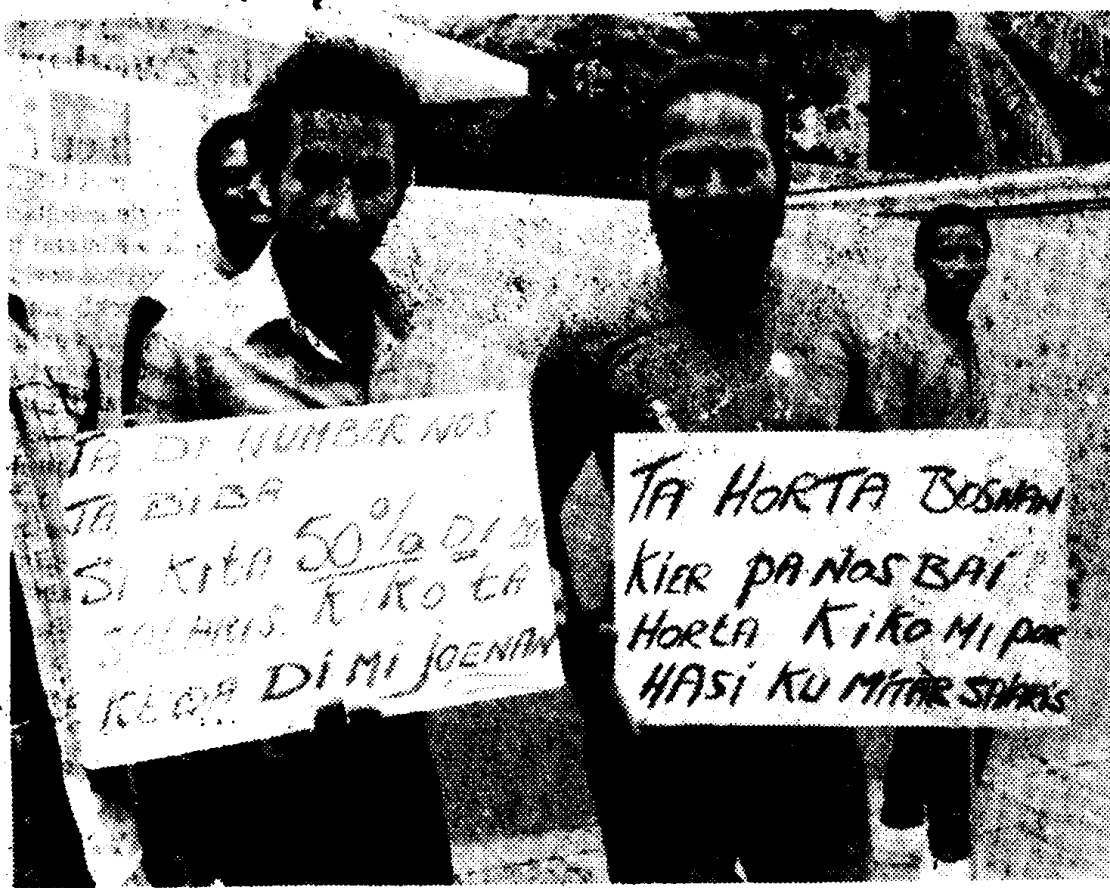 TA DI HUMBER NOS
TA BIBA
SI KITA 50% DI MI
SALARIS. KIKO TA
KEDA DI MI JOENAN
TA HORTA BOSNAN
KIER PA NOS BAI
HORTA KIKO MI POR
HASI KU MITAR SALARIS